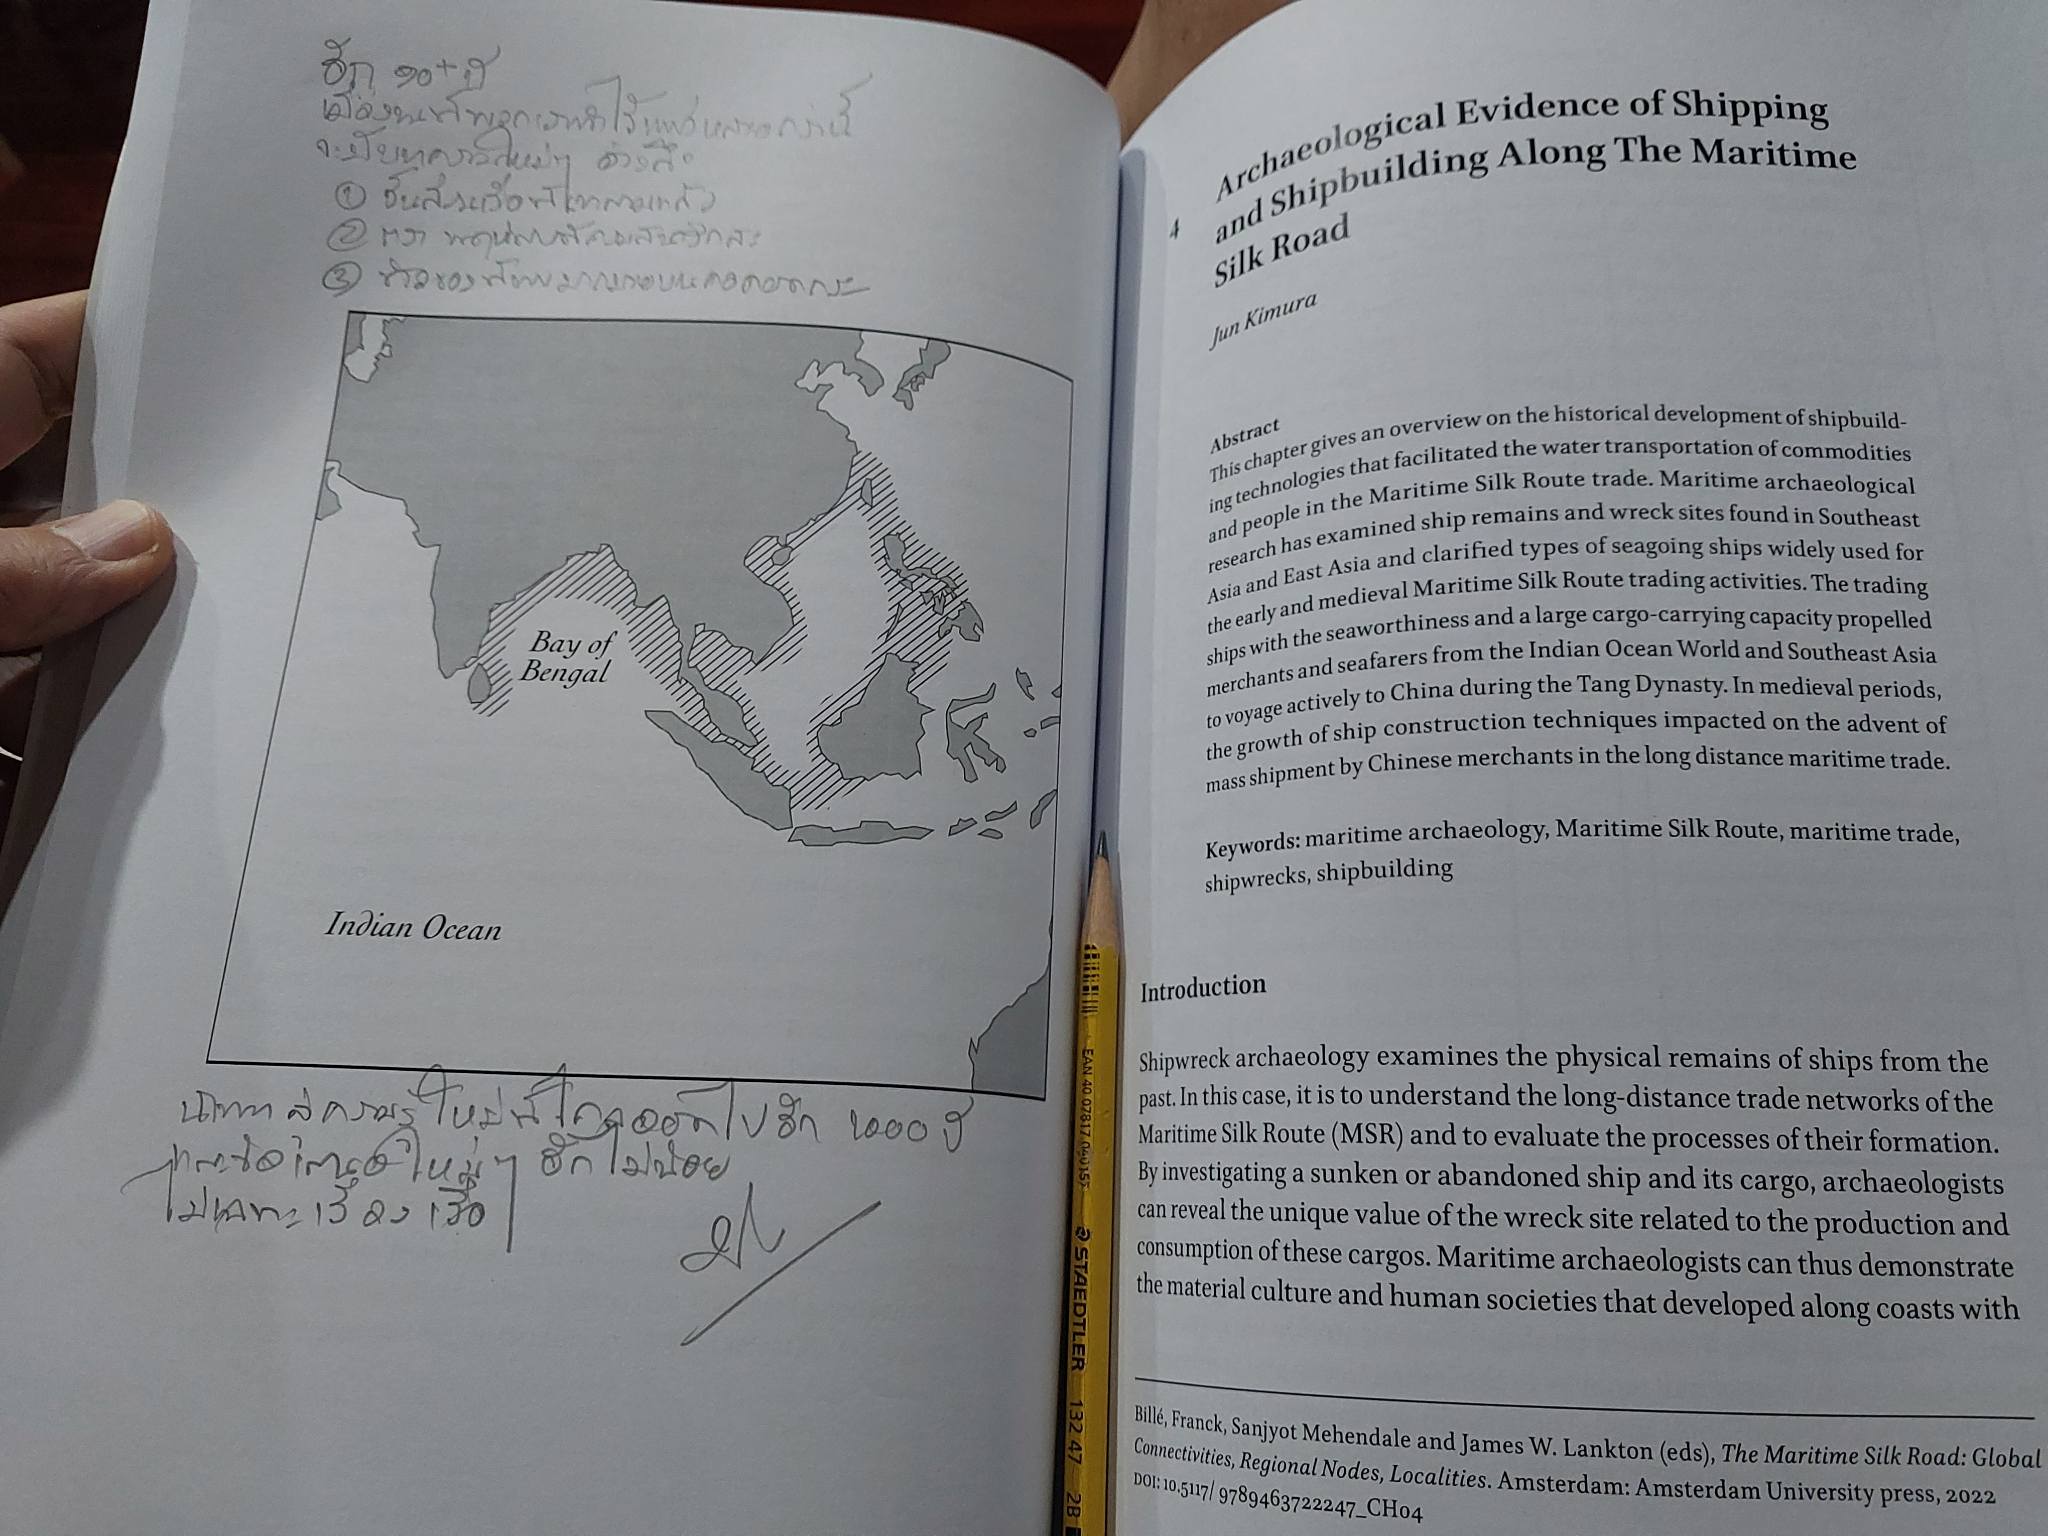 อีก ๑๐+ ปี
① ชิ้นส่วนเรือ
②
③
Bay of
Bengal
Indian Ocean
ใหม่ อีก ๒๐๐๐ ปี
ใหม่ๆ อีกไม่น้อย
ไม่เฉพาะเรื่องเรือ
4
Archaeological Evidence of Shipping
and Shipbuilding Along The Maritime
Silk Road
Jun Kimura
Abstract
This chapter gives an overview on the historical development of shipbuild-
ing technologies that facilitated the water transportation of commodities
and people in the Maritime Silk Route trade. Maritime archaeological
research has examined ship remains and wreck sites found in Southeast
Asia and East Asia and clarified types of seagoing ships widely used for
the early and medieval Maritime Silk Route trading activities. The trading
ships with the seaworthiness and a large cargo-carrying capacity propelled
merchants and seafarers from the Indian Ocean World and Southeast Asia
to voyage actively to China during the Tang Dynasty. In medieval periods,
the growth of ship construction techniques impacted on the advent of
mass shipment by Chinese merchants in the long distance maritime trade.
Keywords: maritime archaeology, Maritime Silk Route, maritime trade,
shipwrecks, shipbuilding
Introduction
Shipwreck archaeology examines the physical remains of ships from the
past. In this case, it is to understand the long-distance trade networks of the
Maritime Silk Route (MSR) and to evaluate the processes of their formation.
By investigating a sunken or abandoned ship and its cargo, archaeologists
can reveal the unique value of the wreck site related to the production and
consumption of these cargos. Maritime archaeologists can thus demonstrate
the material culture and human societies that developed along coasts with
Billé, Franck, Sanjyot Mehendale and James W. Lankton (eds), The Maritime Silk Road: Global
Connectivities, Regional Nodes, Localities. Amsterdam: Amsterdam University press, 2022
DOI: 10.5117/ 9789463722247_CH04
EAN 40 07817 040157 STAEDTLER 132 47 2B